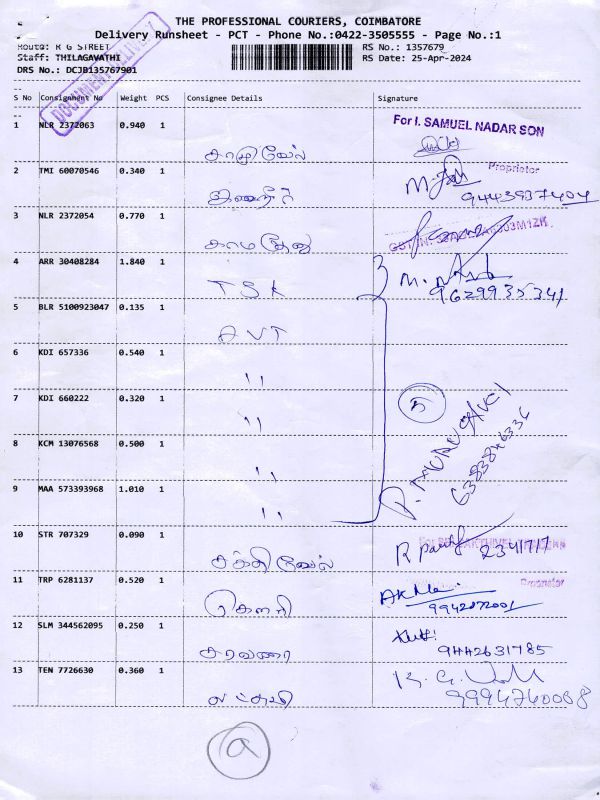 THE PROFESSIONAL COURIERS, COIMBATORE
Delivery Runsheet - PCT - Phone No.:0422-3505555 - Page No.:1
Route: R G STREET
RS No.: 1357679
Staff: THILAGAVATHI
RS Date: 25-Apr-2024
DRS No.: DCJB135767901
S No Consignment No Weight PCS Consignee Details Signature
1 NLR 2372063 0.940 1 For I. SAMUEL NADAR SON
Proprietor
2 TMI 60070546 0.340 1 9443937404
3 NLR 2372054 0.770 1
காமதேனு
4 ARR 30408284 1.840 1 9629935341
TSK
5 BLR 5100923047 0.135 1
AVT
6 KDI 657336 0.540 1
"
7 KDI 660222 0.320 1 5
"
8 KCM 13076568 0.500 1
"
9 MAA 573393968 1.010 1
"
10 STR 707329 0.090 1 2341717
சக்திவேல்
Proprietor
11 TRP 6281137 0.520 1 9942872001
கௌரி
12 SLM 344562095 0.250 1 9442631785
சரவணா
13 TEN 7726630 0.360 1 9994740008
லட்சுமி
a